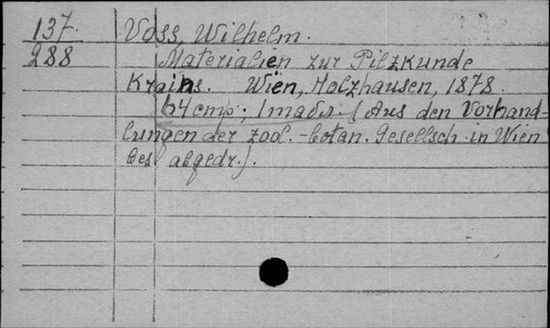 137. Voss, Wilhelm.
288 Materialien zur Pilzkunde
Krains. Wien, Holzhausen, 1878.
64 стр; 1 табл. (Aus den Verhand-
lungen der zool.-botan. Gesellsch. in Wien
bes. abgedr.).